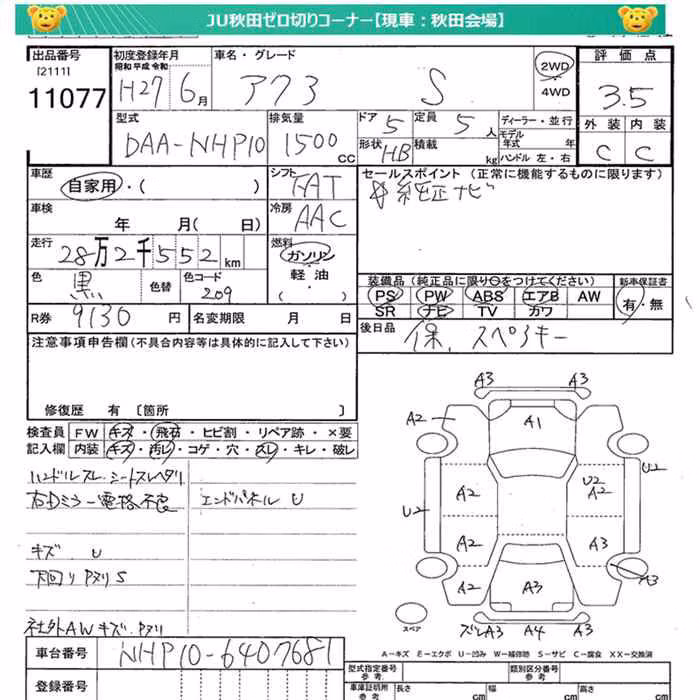 JU秋田ゼロ切りコーナー【現車：秋田会場】
出品番号 初度登録年月 車名・グレード 評価点
[2111] 昭和 平成 令和 2WD
11077 H27 6月 アクア S 4WD 3.5
型式 排気量 ドア 定員 ディーラー・並行 外装 内装
DAA-NHP10 1500 CC 5 5人 モデル年式 年
形状 積載 C C
HB kg ハンドル 左・右
車歴 シフト セールスポイント (正常に機能するものに限ります)
自家用・( ) FAT 純正ナビ
車検 冷房
年 月( 日) AAC
走行 燃料
28万2千552km ガソリン
色 色替 色コード 軽油・
黒 209 ( )
装備品 (純正品に限り○をつけてください) 新車保証書
PS PW ABS エアB AW 有・無
SR ナビ TV カワ
R券 9130円 名変期限 月 日 後日品
保、スペアキー
注意事項申告欄(不具合内容等は具体的に記入して下さい)
修復歴 有 [箇所 ]
検査員 FW キズ・飛石・ヒビ割・リペア跡・×要
記入欄 内装 キズ・汚レ・コゲ・穴・スレ・キレ・破レ
ハンドルスレ シートスレヘタリ
右Dミラー電格不良 エンドパネル U
キズ U
下回り Pヌリ S
社外AW キズ Pヌリ
A3 A3
A2 A1
U2
A2 U2 A2
U2
A2 A3
A2 A3 A3
スペア ズレA3 A4 A3
A－キズ E－エクボ U－凹み W－補修跡 S－サビ C－腐食 XX－交換済
車台番号 NHP10-6407681
型式指定番号 参考 類別区分番号 参考
登録番号 車庫証明用 参考 長さ cm 幅 cm 高さ cm